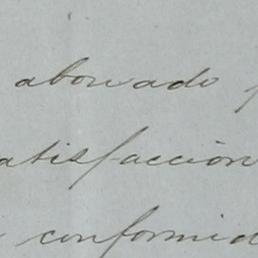 abonado p
atisfacción
conformid